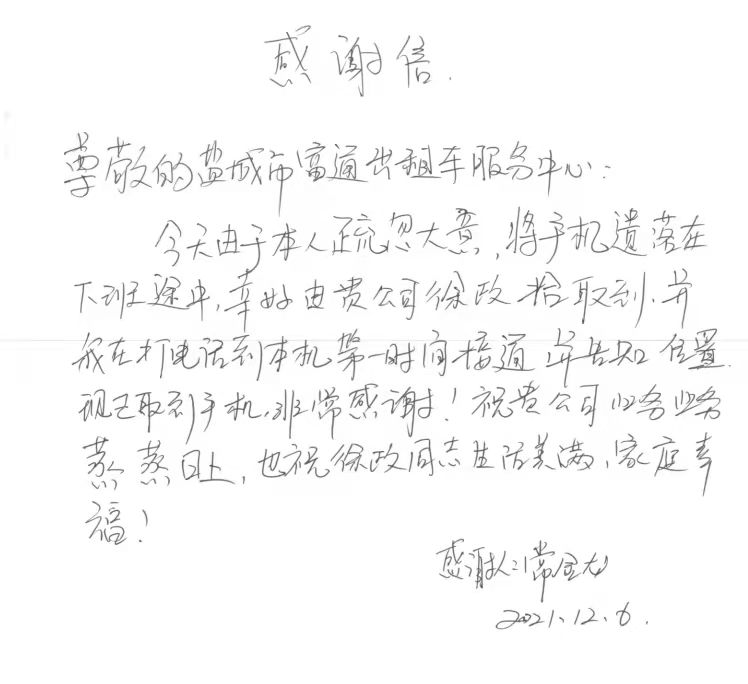 感谢信.
尊敬的盐城市富通出租车服务中心:
今天由于本人疏忽大意,将手机遗落在
下班途中,幸好由贵公司徐政拾取到.并
我在打电话到本机第一时间接通并告知位置.
现已取到手机.非常感谢!祝贵公司业务业务
蒸蒸日上,也祝徐政同志生活美满、家庭幸
福!
感谢人:常金
2021.12.6.